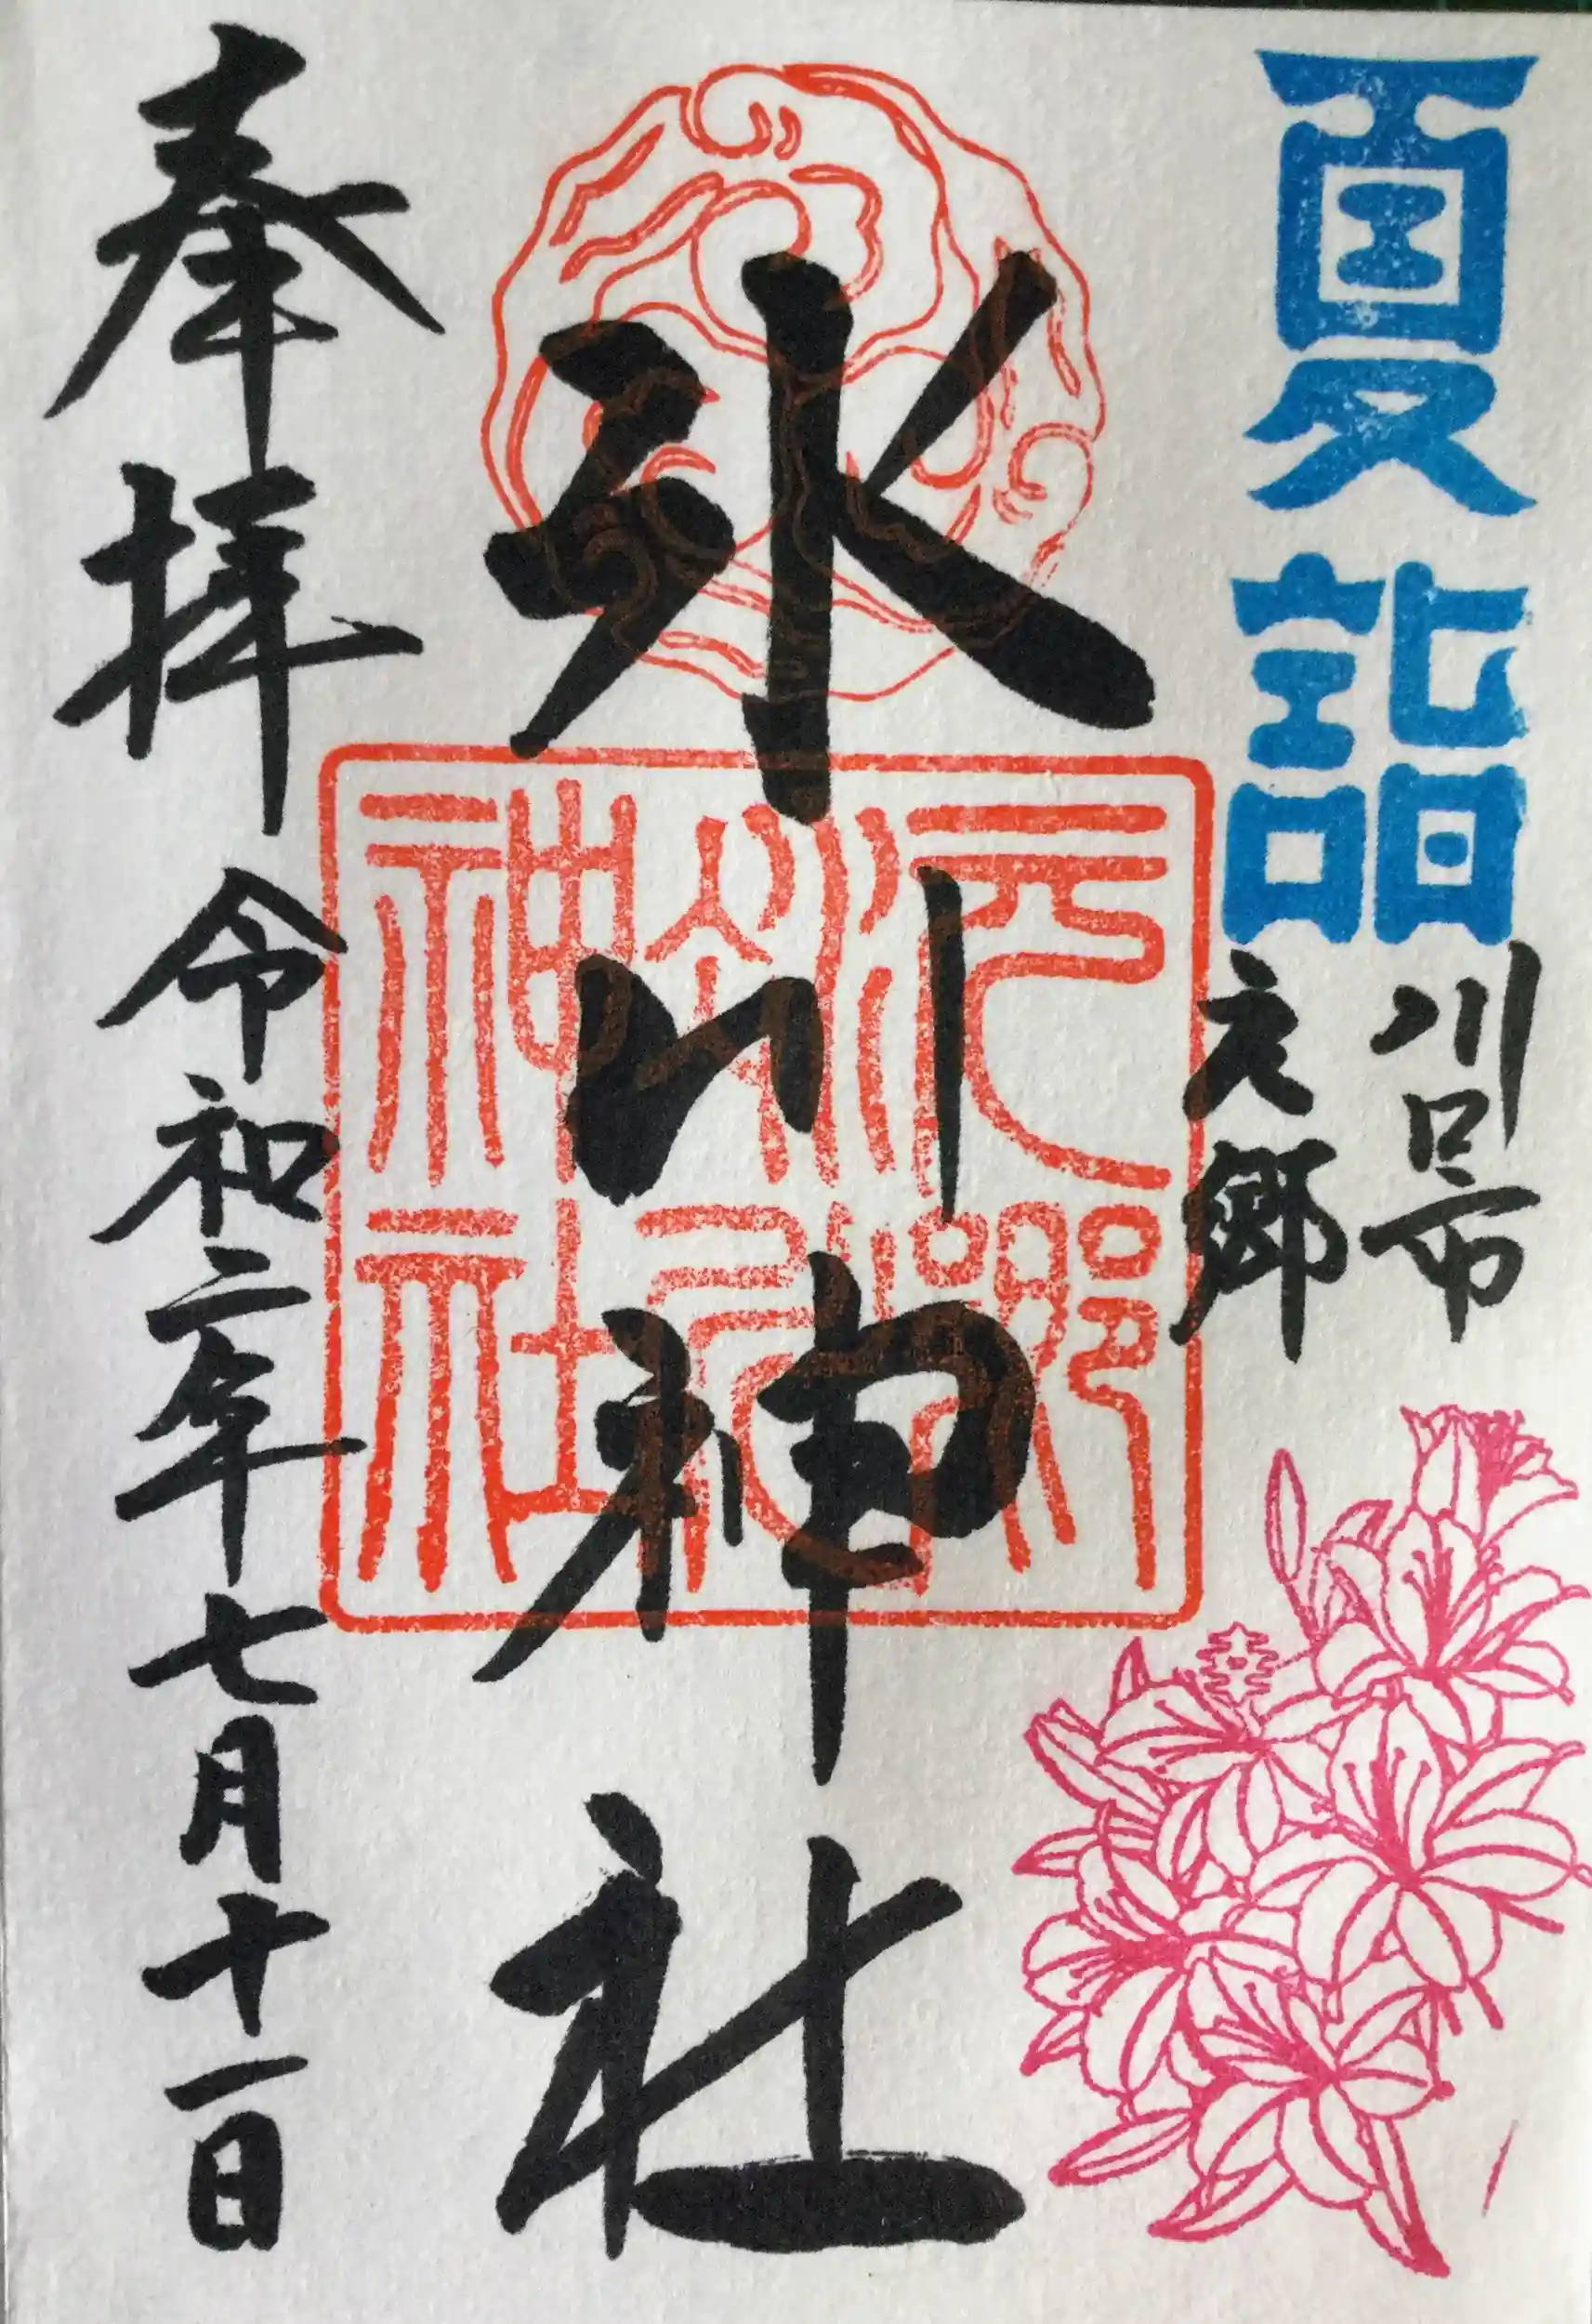 夏詣
川口市
元郷
氷川神社
神社
奉拝 令和二年七月十一日